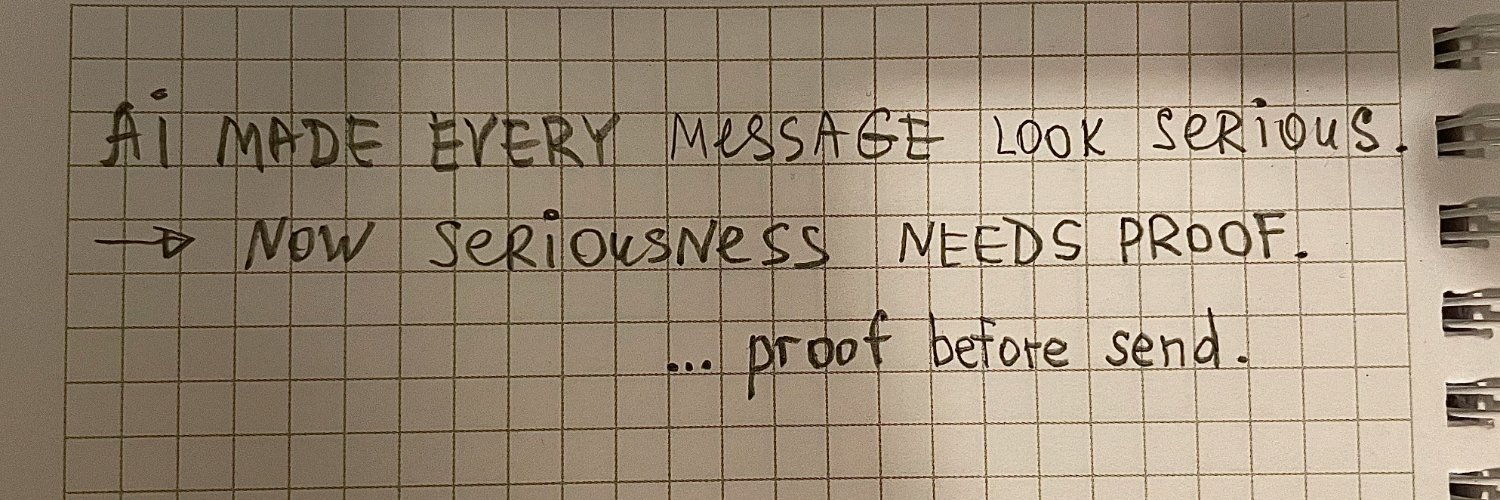 Ai MADE EVERY MeSSAGE LOOK SeRiOUS.
→ NOW SeRiOUSNeSS NEEDS PROOF.
... proof before send.